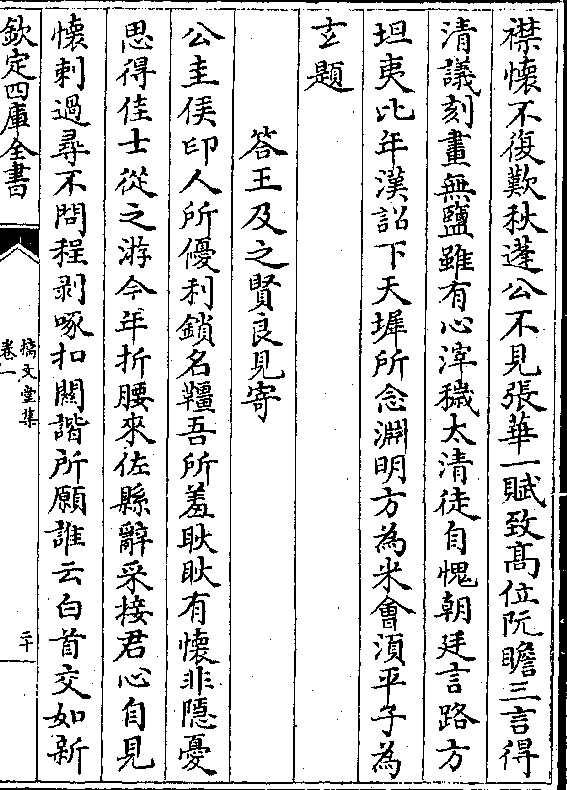 襟懷不復歎秋蓬公不見張華一賦致髙位阮瞻三言得
清議刻畫無鹽雖有心滓穢太清徒自愧朝廷言路方
坦夷比年漢詔下天墀所念淵明方為米會須平子為
玄題
答王及之賢良見寄
公圭侯印人所優利鎖名韁吾所羞耿耿有懷非隱憂
思得佳士從之游今年折腰來佐縣辭采接君心自見
懷刺過尋不問程剥啄扣闗諧所願誰云白首交如新
欽定四庫全書
摛文堂集
卷一
二十